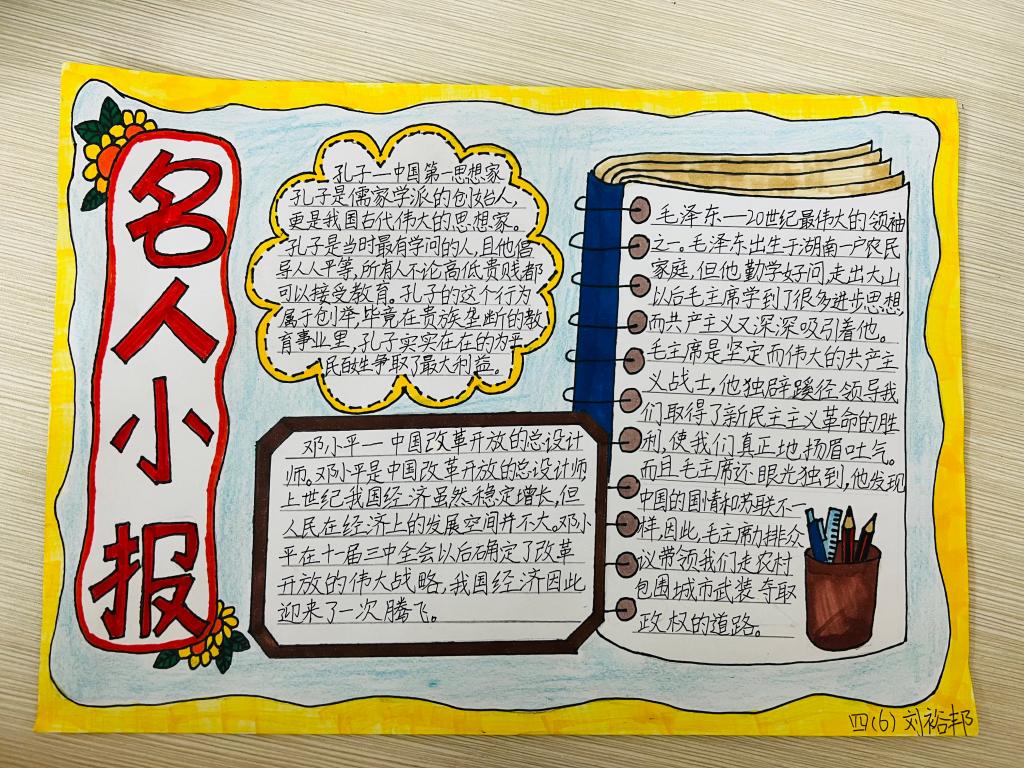 名人小报
孔子—中国第一思想家
孔子是儒家学派的创始人,
更是我国古代伟大的思想家。
孔子是当时最有学问的人,且他倡
导人人平等,所有人不论高低贵贱都
可以接受教育。孔子的这个行为
属于创举,毕竟在贵族垄断的教
育事业里,孔子实实在在的为平
民百姓争取了最大利益。
邓小平—中国改革开放的总设计
师。邓小平是中国改革开放的总设计师,
上世纪我国经济虽然稳定增长,但
人民在经济上的发展空间并不大。邓小
平在十一届三中全会以后确定了改革
开放的伟大战略,我国经济因此
迎来了一次腾飞。
毛泽东—20世纪最伟大的领袖
之一。毛泽东出生于湖南一户农民
家庭,但他勤学好问,走出大山
以后毛主席学到了很多进步思想,
而共产主义又深深吸引着他。
毛主席是坚定而伟大的共产主
义战士,他独辟蹊径领导我
们取得了新民主主义革命的胜
利,使我们真正地扬眉吐气。
而且毛主席还眼光独到,他发现
中国的国情和苏联不一
样,因此,毛主席力排众
议带领我们走农村
包围城市武装夺取
政权的道路。
四(6)刘裕邦